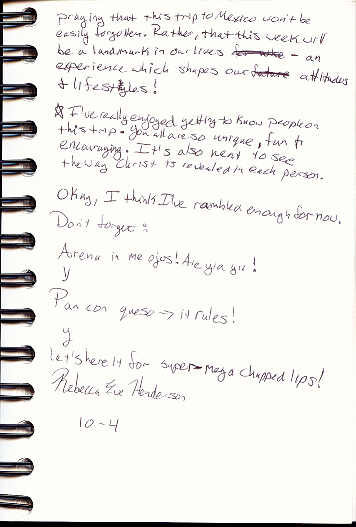 praying that this trip to Mexico won't be
easily forgotten. Rather, that this week will
be a landmark in our lives - an
experience which shapes our attitudes
+ lifestyles!
I've really enjoyed getting to know people on
this trip. You all are so unique, fun &
encouraging. It's also neat to see
the way Christ is revealed in each person.
Okay, I think I've rambled enough for now.
Don't forget:
Arena in me ojos! Aie yia yia!
y
Pan con queso → it rules!
y
Let's here it for super-mega chapped lips!
Rebecca Eve Henderson
10-4